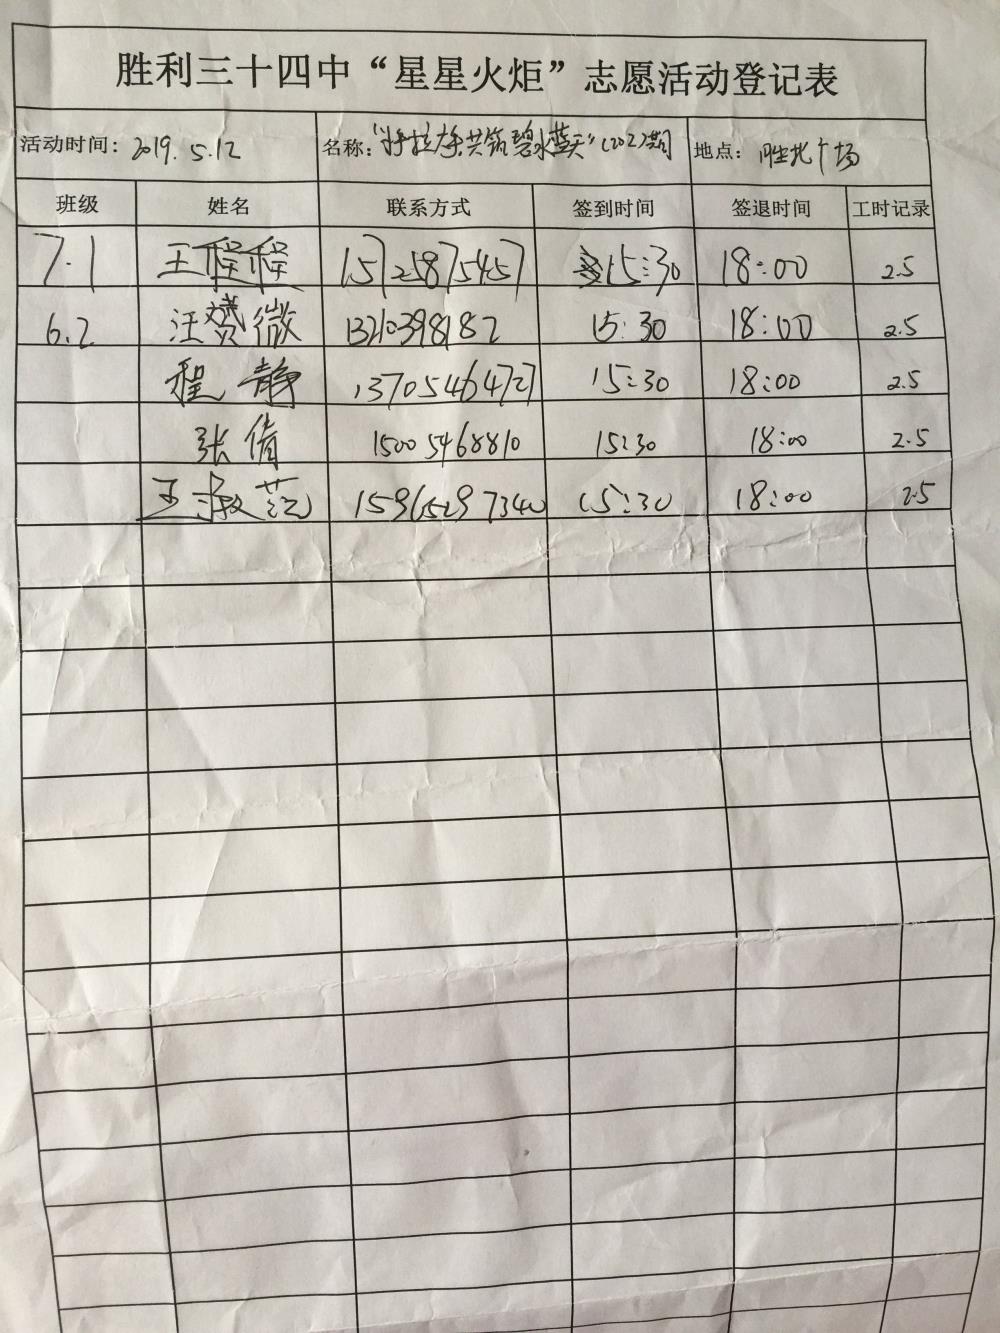 胜利三十四中“星星火炬”志愿活动登记表
活动时间：2019.5.12 名称：“手拉手共筑碧水蓝天”(202)期 地点：胜北广场
班级 姓名 联系方式 签到时间 签退时间 工时记录
7.1 王程程 15725875457 15:30 18:00 2.5
6.2 汪赟微 15:30 18:00 2.5
程静 13705464727 15:30 18:00 2.5
张倩 15005468810 15:30 18:00 2.5
王 15:30 18:00 2.5